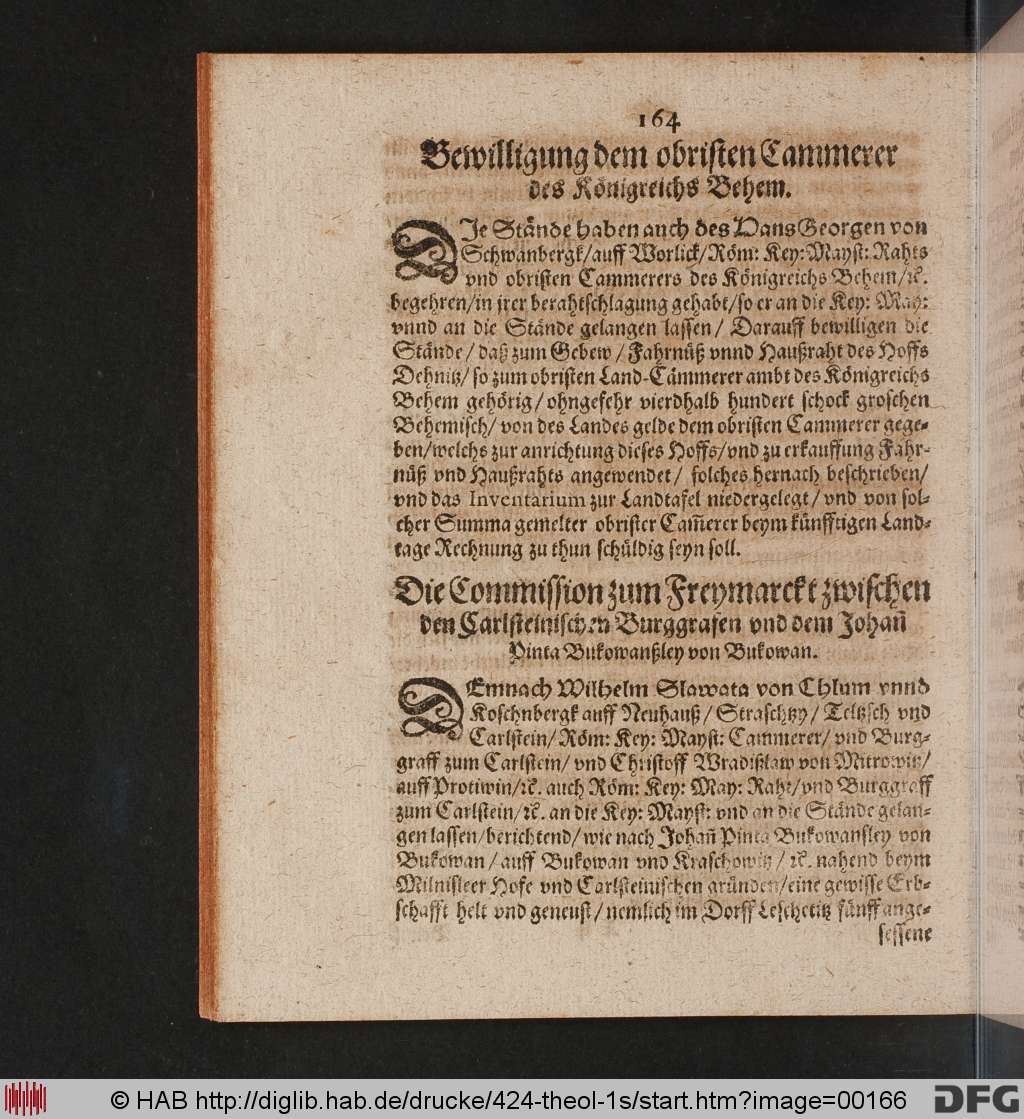 164
Bewilligung dem obristen Cammerer
des Königreichs Behem.
DIe Stände haben auch des Hans Georgen von
Schwanbergk/auff Worlick/Röm: Key: Mayst: Rahts
vnd obristen Cammerers des Königreichs Behem/ꝛc.
begehren/in jrer berahtschlagung gehabt/so er an die Key: May:
vnnd an die Stände gelangen lassen/ Darauff bewilligen die
Stände/ daß zum Gebew/ Fahrnüß vnnd Haußraht des Hoffs
Dehnitz/ so zum obristen Land-Cämmerer ambt des Königreichs
Behem gehörig/ ohngefehr vierdhalb hundert schock groschen
Behemisch/ von des Landes gelde dem obristen Cammerer gege-
ben/welchs zur anrichtung dieses Hoffs/vnd zu erkauffung Fahr-
nüß vnd Haußrahts angewendet/ solches hernach beschrieben/
vnd das Inventarium zur Landtafel niedergelegt/ vnd von sol-
cher Summa gemelter obrister Cam̃erer beym künfftigen Land-
tage Rechnung zu thun schüldig seyn soll.
Die Commission zum Freymarckt zwischen
den Carlsteinischen Burggrafen vnd dem Johañ
Pinta Bukowanßley von Bukowan.
DEmnach Wilhelm Slawata von Chlum vnnd
Koschnbergk auff Neuhauß/ Straschtzy/ Teltzsch vnd
Carlstein/ Röm: Key: Mayst: Cammerer/ vnd Burg-
graff zum Carlstein/ vnd Christoff Wradißlaw von Mitrowitz/
auff Protiwin/ꝛc. auch Röm: Key: May: Raht/vnd Burggraff
zum Carlstein/ꝛc. an die Key: Mayst: vnd an die Stände gelan-
gen lassen/berichtend/ wie nach Johañ Pinta Bukowansley von
Bukowan/ auff Bukowan vnd Kraschowitz/ ꝛc. nahend beym
Milnisteer Hofe vnd Carlsteinischen gründen/eine gewisse Erb-
schafft helt vnd geneust/ nemlich im Dorff Leschetitz fünff ange-
sessene
© HAB http://diglib.hab.de/drucke/424-theol-1s/start.htm?image=00166
DFG